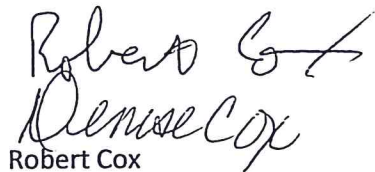 Robert Cox
Denise Cox
Robert Cox